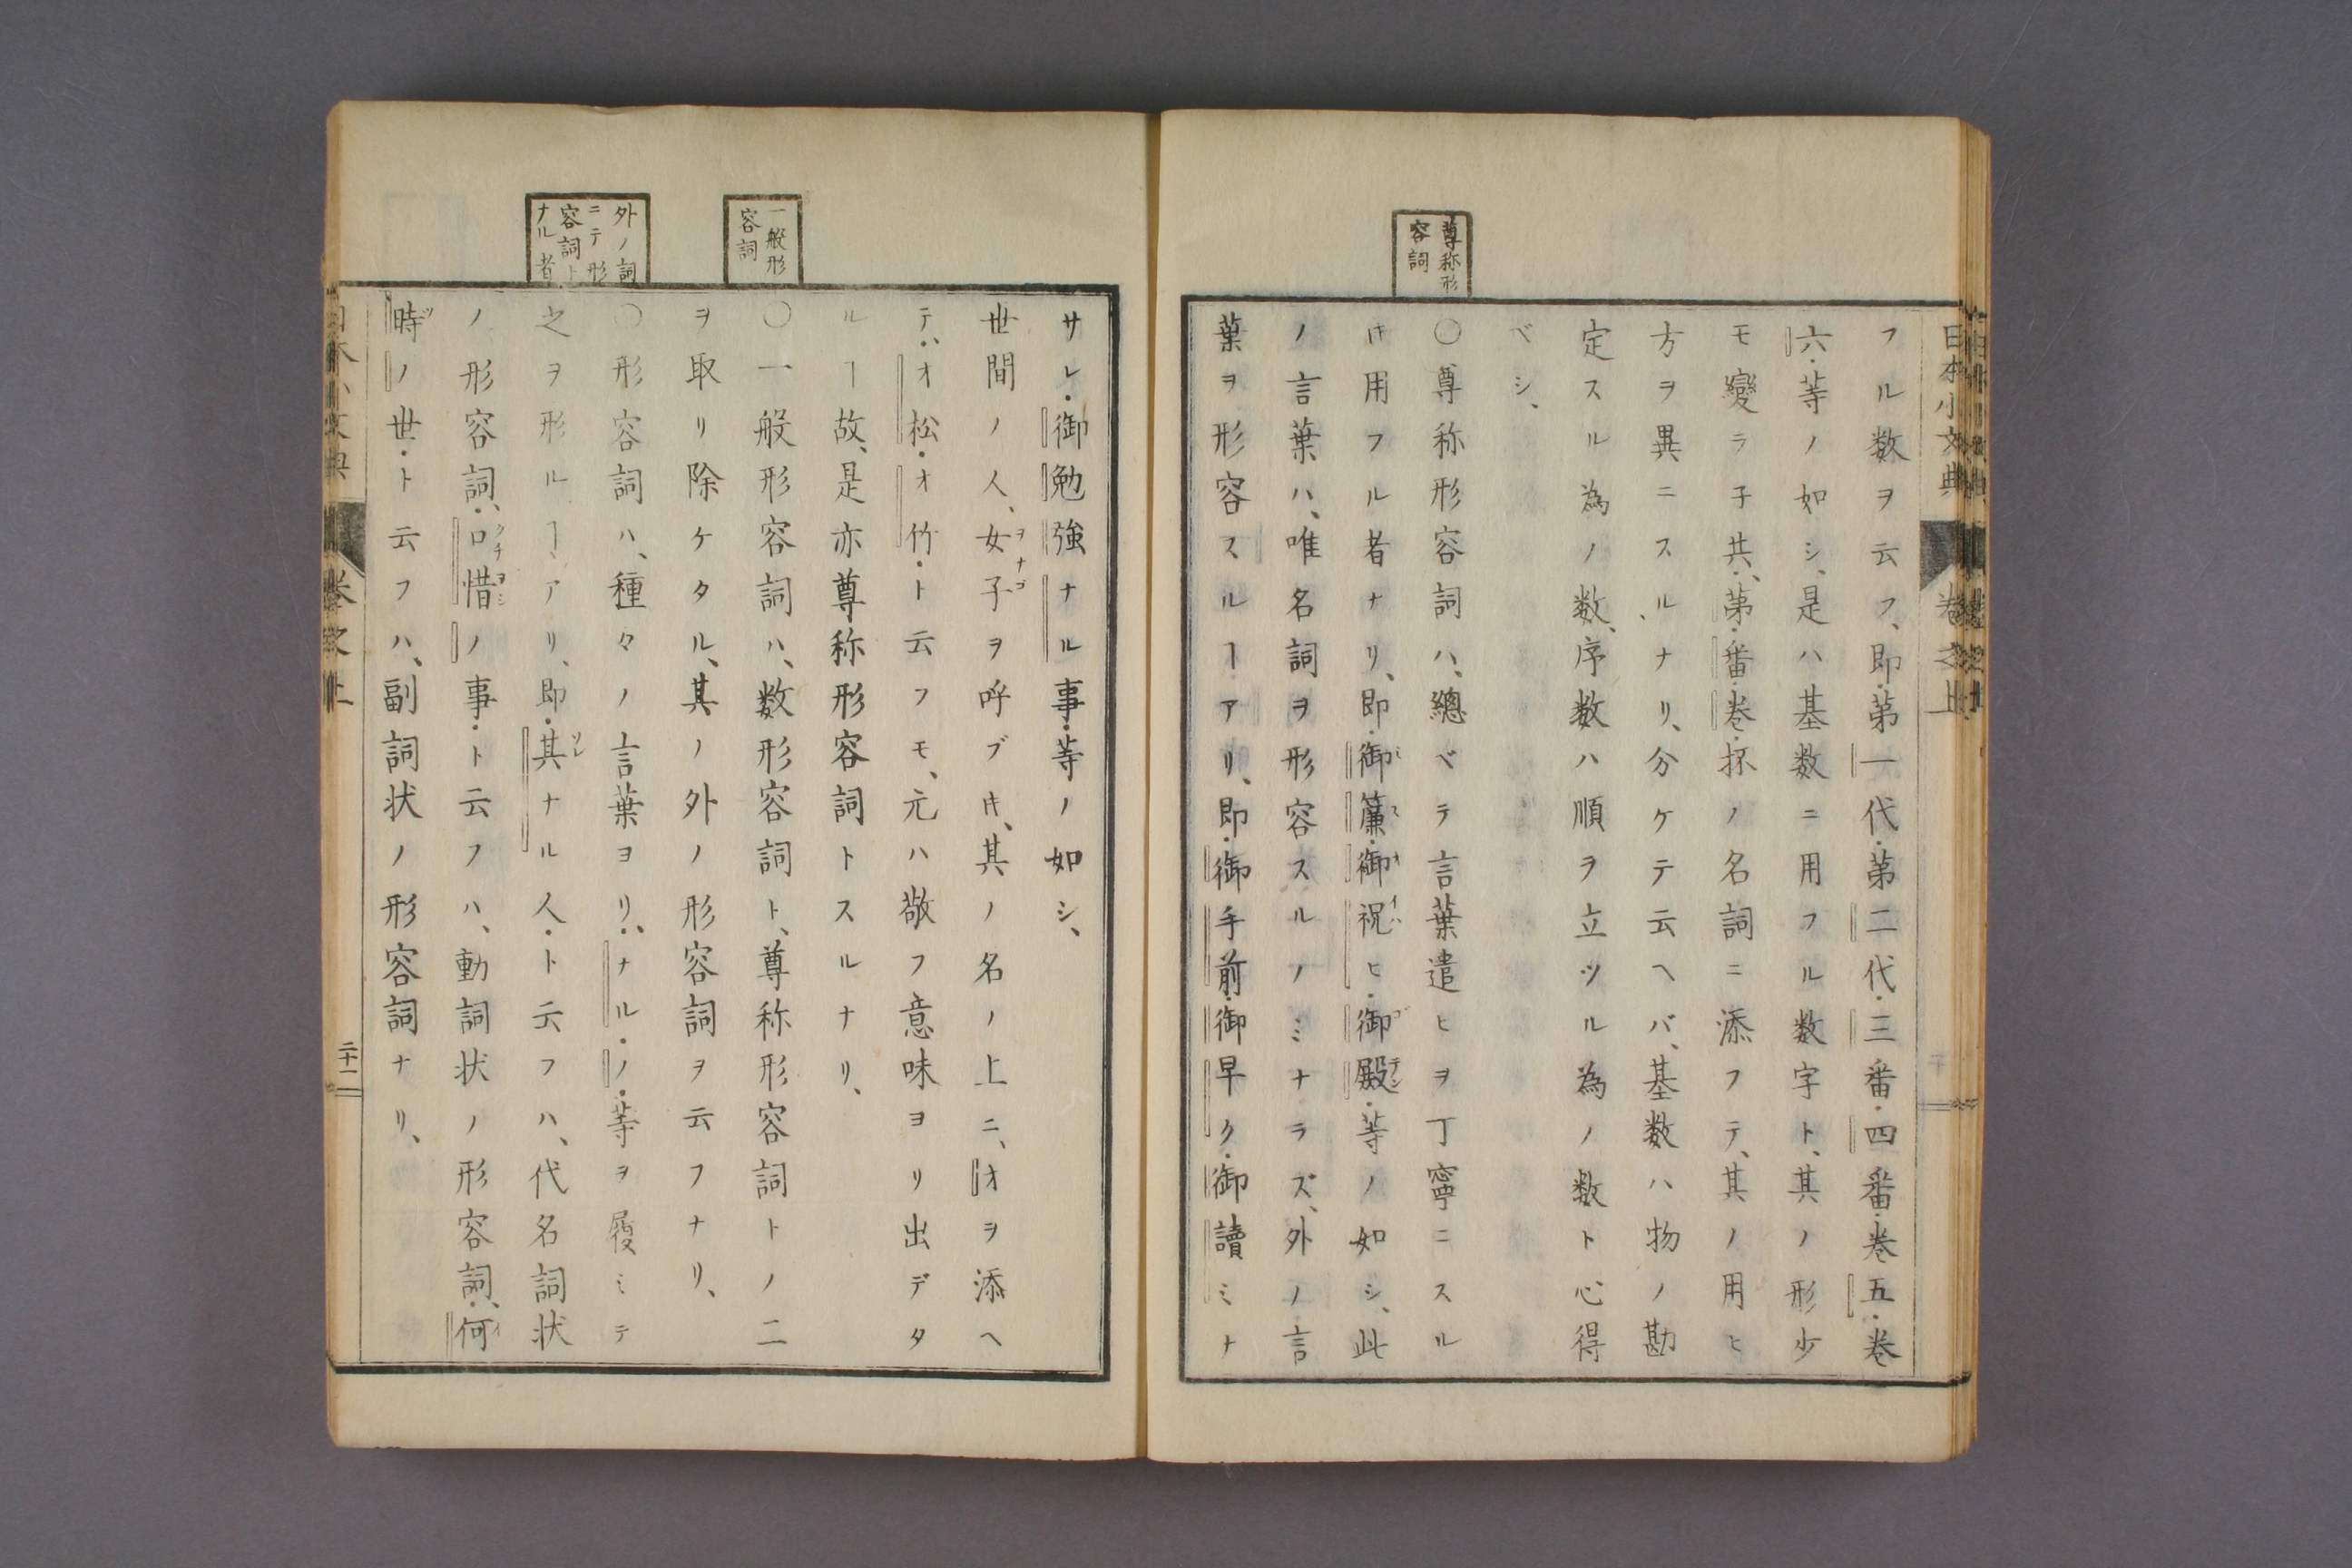 日本小文典 卷之上
フル数ヲ云フ、即・第一代・第二代・三番・四番・卷五・卷
六・等ノ如シ、是ハ基数ニ用フル数字ト、其ノ形少
モ變ラ子共、第・番・卷・抔ノ名詞ニ添フテ、其ノ用ヒ
方ヲ異ニスルナリ、分ケテ云ヘバ、基数ハ物ノ勘
定スル為ノ数、序数ハ順ヲ立ツル為ノ数ト心得
ベシ、
尊称形
容詞
〇尊称形容詞ハ、總ベテ言葉遣ヒヲ丁寧ニスル
キ用フル者ナリ、即・御簾・御祝ヒ・御殿・等ノ如シ、此
ノ言葉ハ、唯名詞ヲ形容スルノミナラズ、外ノ言
葉ヲ形容スルヿアリ、即・御手前・御早ク・御讀ミナ
サレ・御勉強ナル事・等ノ如シ、
世間ノ人、女子ヲ呼ブキ、其ノ名ノ上ニ、オヲ添ヘ
テ、オ松・オ竹・ト云フモ、元ハ敬フ意味ヨリ出デタ
ルヿ故、是亦尊称形容詞トスルナリ、
一般形
容詞
〇一般形容詞ハ、数形容詞ト、尊称形容詞トノ二
ヲ取リ除ケタル、其ノ外ノ形容詞ヲ云フナリ、
外ノ詞
ニテ形
容詞ト
ナル者
〇形容詞ハ、種々ノ言葉ヨリ、ナル・ノ・等ヲ履ミテ
之ヲ形ルヿアリ、即・其ナル人・ト云フハ、代名詞状
ノ形容詞、口惜ノ事・ト云フハ、動詞状ノ形容詞、何
時ノ世・ト云フハ、副詞状ノ形容詞ナリ、
日本小文典 卷之上 二十二